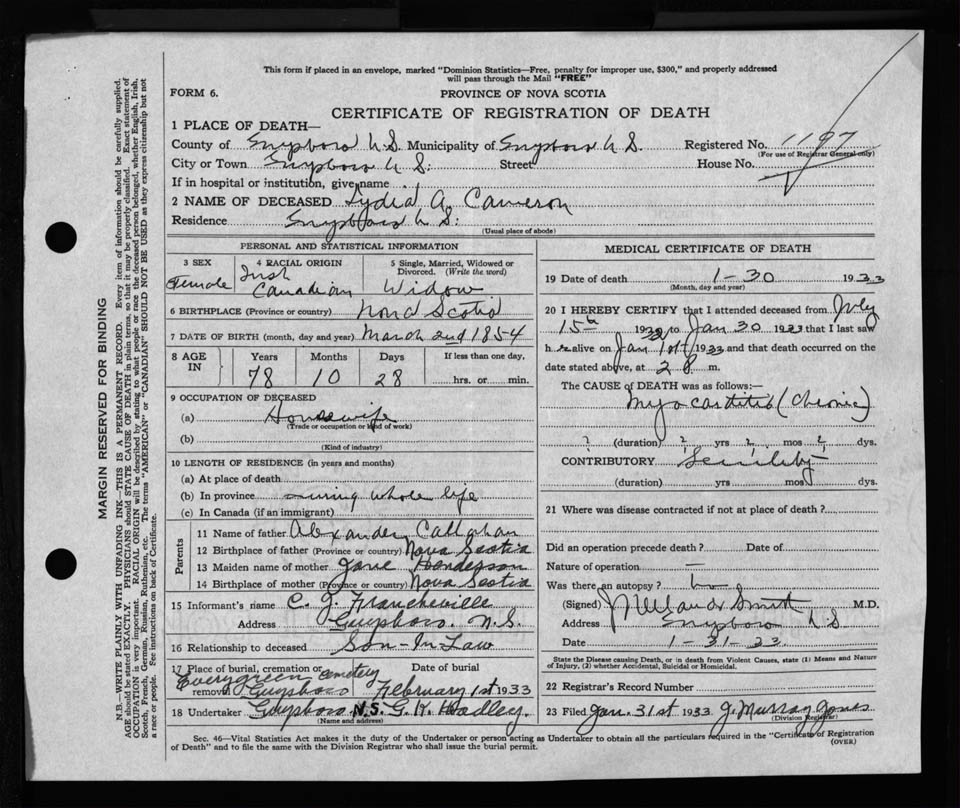 This form if placed in an envelope, marked "Dominion Statistics—Free, penalty for improper use, $300," and properly addressed
will pass through the Mail "FREE"
FORM 6. PROVINCE OF NOVA SCOTIA
CERTIFICATE OF REGISTRATION OF DEATH
1 PLACE OF DEATH—
County of Guysboro N.S. Municipality of Guysboro N S. Registered No. 1197
(For use of Registrar General only)
City or Town Guysboro N S. Street House No.
If in hospital or institution, give name
2 NAME OF DECEASED Lydia A. Cameron
Residence Guysboro N S.
(Usual place of abode)
MARGIN RESERVED FOR BINDING
N.B.—WRITE PLAINLY WITH UNFADING INK—THIS IS A PERMANENT RECORD. Every item of information should be carefully supplied.
AGE should be stated EXACTLY. PHYSICIANS should STATE CAUSE OF DEATH in plain terms, so that it may be properly classified. Exact statement of
OCCUPATION is very important. RACIAL ORIGIN will be described by stating to what people or race the deceased person belonged, whether English, Irish,
Scotch, French, German, Russian, Ruthenian, etc. The terms "AMERICAN" or "CANADIAN" SHOULD NOT BE USED as they express citizenship but not
a race or people. See instructions on back of Certificate.
PERSONAL AND STATISTICAL INFORMATION
3 SEX 4 RACIAL ORIGIN 5 Single, Married, Widowed or
Divorced. (Write the word)
Female Irish
Canadian Widow
6 BIRTHPLACE (Province or country) Nova Scotia
7 DATE OF BIRTH (month, day and year) March 2nd 1854
8 AGE
IN Years Months Days If less than one day,
78 10 28 hrs. or min.
9 OCCUPATION OF DECEASED
(a) Housewife
(Trade or occupation or kind of work)
(b)
(Kind of industry)
10 LENGTH OF RESIDENCE (in years and months)
(a) At place of death
(b) In province during whole life
(c) In Canada (if an immigrant)
Parents
11 Name of father Alexander Callahan
12 Birthplace of father (Province or country) Nova Scotia
13 Maiden name of mother Jane Henderson
14 Birthplace of mother (Province or country) Nova Scotia
15 Informant's name C. J. Francheville
Address Guysboro. N.S.
16 Relationship to deceased Son-In-Law
17 Place of burial, cremation or Date of burial
Evergreen cemetery
removal Guysboro February 1st 1933
18 Undertaker Guysboro N.S. G. K. Hadley.
(Name and address)
MEDICAL CERTIFICATE OF DEATH
19 Date of death 1-30 1933
(Month, day and year)
20 I HEREBY CERTIFY that I attended deceased from July
15th 1932 to Jan 30 1933 that I last saw
h er alive on Jan 1933 and that death occurred on the
date stated above, at m.
The CAUSE of DEATH was as follows:—
Myocarditis (Chronic)
? (duration) ? yrs ? mos ? dys.
CONTRIBUTORY Senility
(duration) yrs mos dys.
21 Where was disease contracted if not at place of death?
Did an operation precede death? Date of
Nature of operation —
Was there an autopsy?
(Signed) Smith M.D.
Address Guysboro N S
Date 1-31-33
State the Disease causing Death, or in death from Violent Causes, state (1) Means and Nature
of Injury, (2) whether Accidental, Suicidal or Homicidal.
22 Registrar's Record Number
23 Filed Jan. 31st 1933 J. Murray Jones
(Division Registrar)
Sec. 46—Vital Statistics Act makes it the duty of the Undertaker or person acting as Undertaker to obtain all the particulars required in the "Certificate of Registration
of Death" and to file the same with the Division Registrar who shall issue the burial permit. (OVER)